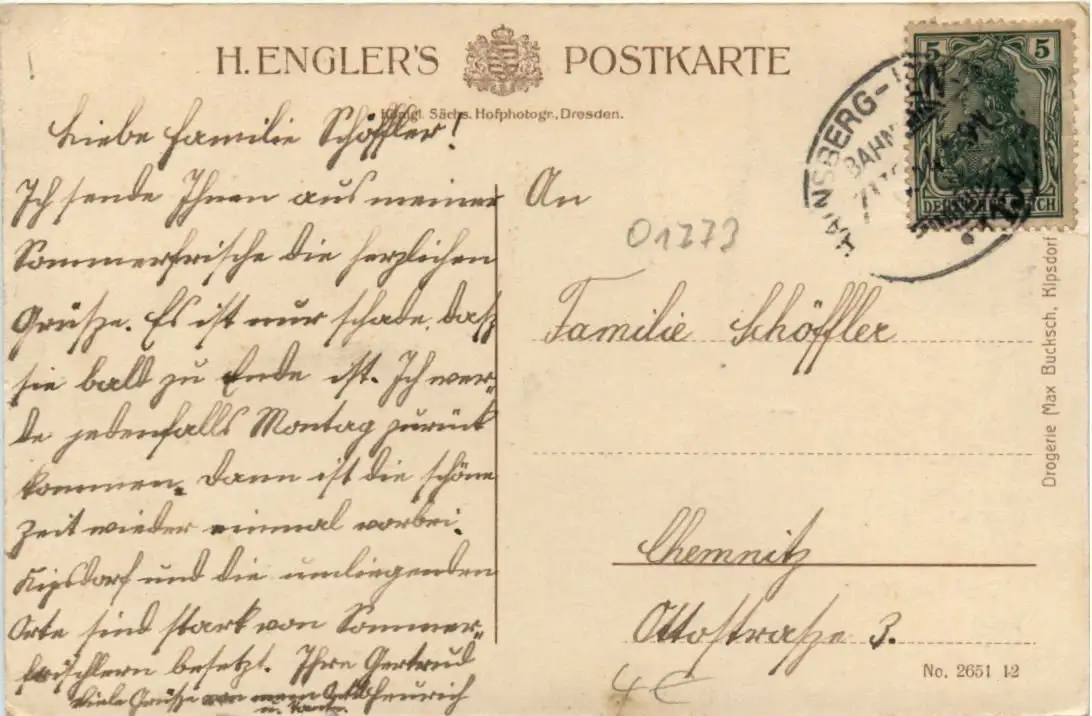 H. ENGLER'S POSTKARTE
Königl. Sächs. Hofphotogr., Dresden.
Liebe Familie Schöffler!
Ich sende Ihnen aus meiner
Sommerfrische die herzlichen
Grüsze. Es ist nur schade, dasz
sie bald zu Ende ist. Ich wer-
de jedenfalls Montag zurück
kommen. Dann ist die schöne
Zeit wieder einmal vorbei.
Kipsdorf und die umliegenden
Orte sind stark von Sommer-
frischlern besetzt. Ihre Gertrud
Viele Grüsze von
u. Tante.
An
01773
Familie Schöffler
Chemnitz
Ottostrasze 3.
4€
5 5
DEUTSCHES REICH
HAINSBERG-
BAHN
Drogerie Max Bucksch, Kipsdorf
No. 2651 12